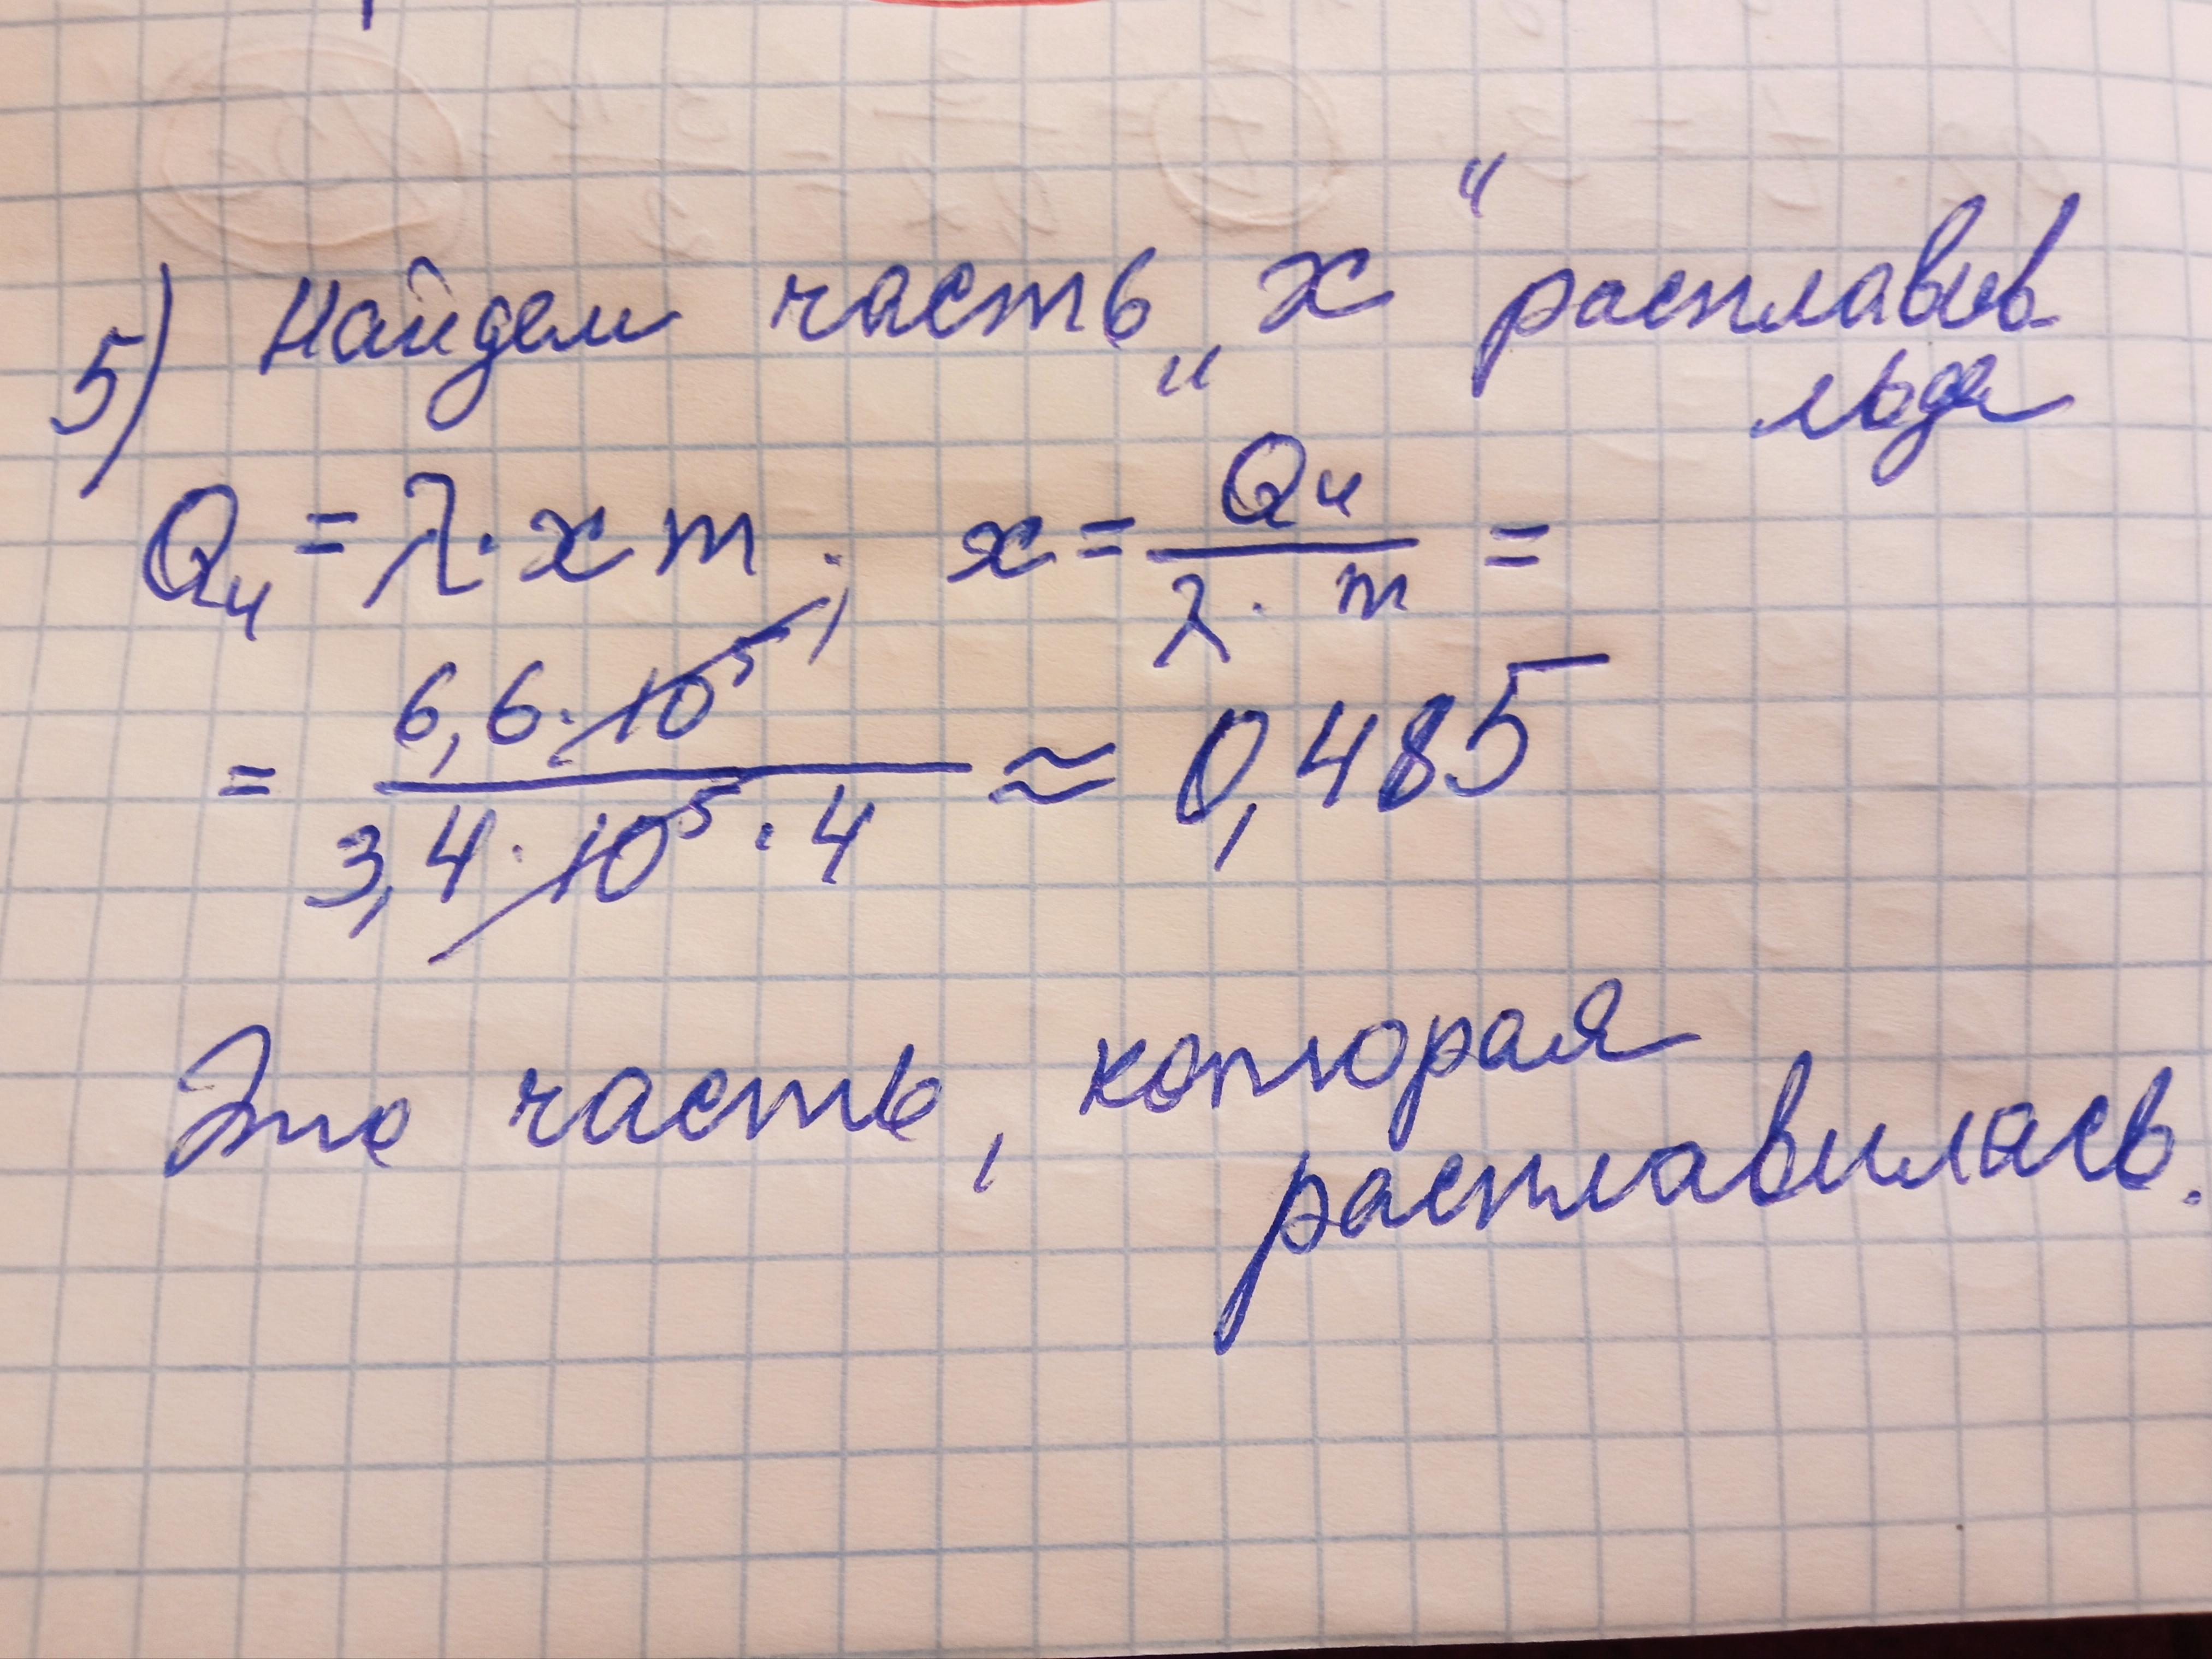 5) Найдем часть „x“ расплавив
льда
Q₄ = λ · x m ; x = Q₄ / (λ · m) =
= 6,6 · 10⁵ / (3,4 · 10⁵ · 4) ≈ 0,485
Это часть, которая
расплавилась.